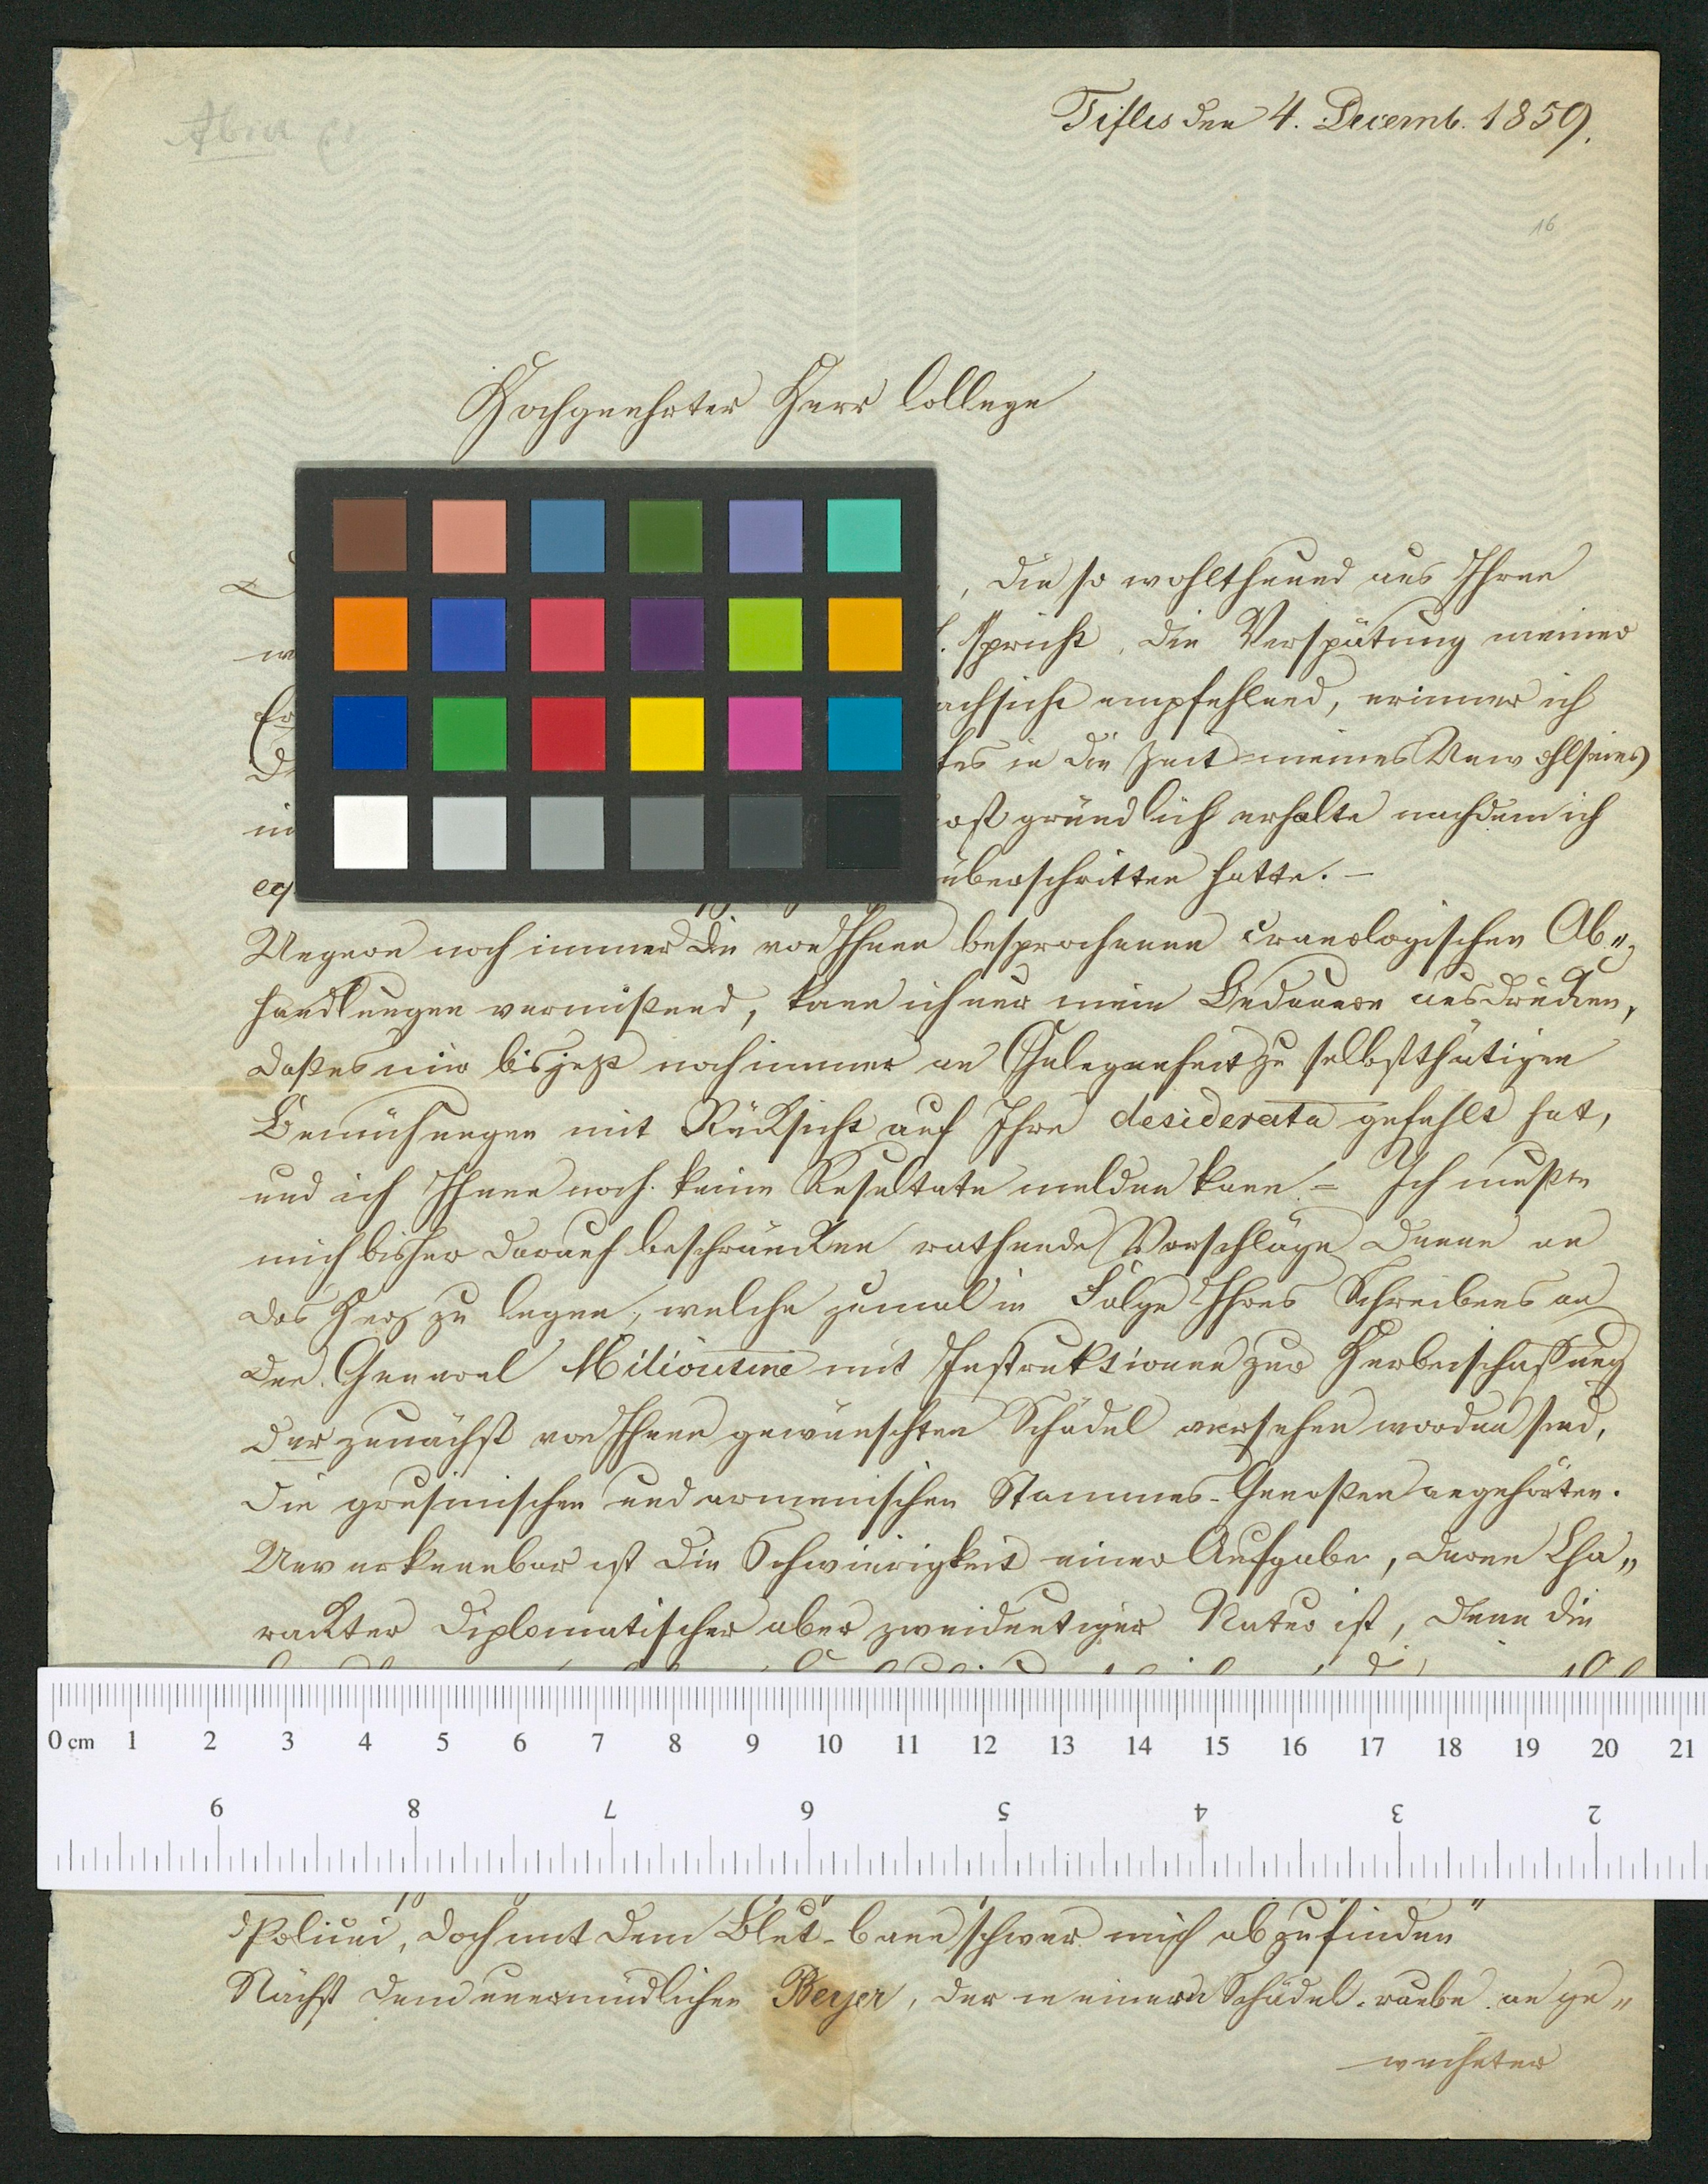 Abich
Tiflis den 4. Decemb. 1859.
16
Hochgeehrter Herr College
, die so wohlthuend aus Ihren
spricht, die Verspätung meiner
achsicht empfehlend, erinner ich
tes in die Zeit meines Unwohlseins
gründlich erholte nachdem ich
überschritten hatte. –
Ungern noch immer die von Ihnen besprochenen craneologischen Ab„
handlungen vermißend, kann ich nur mein Bedauern ausdrücken,
daß es mir bis jezt noch immer an Gelegenheit zu selbstthätigen
Bemühungen mit Rücksicht auf Ihre desiderata gefehlt hat,
und ich Ihnen noch keine Resultate melden kann. – Ich mußte
mich bisher darauf beschräncken rathende Vorschläge denen an
das Herz zu legen, welche zumal in Folge Ihres Schreibens an
den General Milioutine mit Instruktionen zur Herbeischaffung
der zunächst von Ihnen gewünschten Schädel versehen worden sind,
die grusinischen und armenischen Stammes-Genoßen angehörten.
Unverkennbar ist die Schwierigkeit einer Aufgabe, deren Cha„
rackter diplomatischer aber zweideutiger Natur ist, denn die
0 cm 1 2 3 4 5 6 7 8 9 10 11 12 13 14 15 16 17 18 19 20 21
9 8 7 6 5 4 3 2
Polizei, doch mit dem Blut-bann schwer mich abzufinden"
Nächst dem unermüdlichen Beyer, der in einem Schädel-raube an ge„